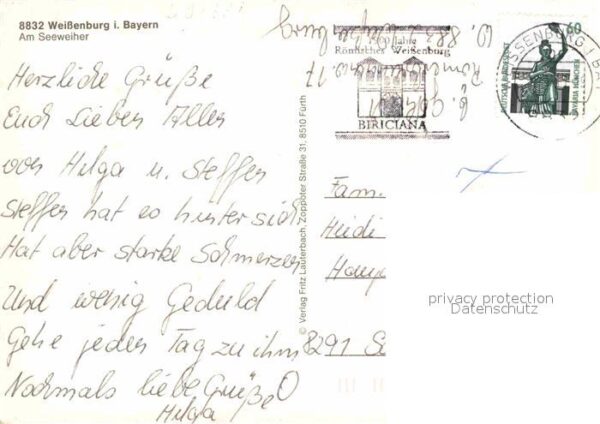 8832 Weißenburg i. Bayern
Am Seeweiher
Herzliche Grüße
Euch Lieben Allen
von Helga u. Steffen
Steffen hat es hinter sich
Hat aber starke Schmerzen
Und wenig Geduld
Gehe jeden Tag zu ihm
Nochmals liebe Grüße
Helga
© Verlag Fritz Lauterbach, Zoppoter Straße 31, 8510 Fürth
Jahre
Römisches Weißenburg
BIRICIANA
60
DEUTSCHE BUNDESPOST
BAVARIA MÜNCHEN
Fam.
Heidi
8291
privacy protection
Datenschutz